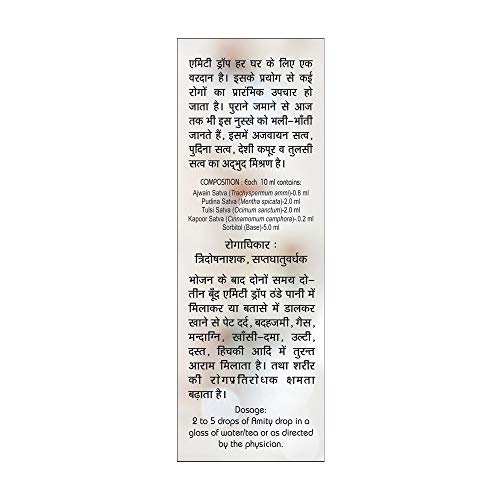 एमिटी ड्रॉप हर घर के लिए एक
वरदान है। इसके प्रयोग से कई
रोगों का प्रारंमिक उपचार हो
जाता है। पुराने जमाने से आज
तक भी इस नुस्खे को भली-भाँती
जानते हैं, इसमें अजवायन सत्व,
पुदिना सत्व, देशी कपूर व तुलसी
सत्व का अद्भुद मिश्रण है।
COMPOSITION: Each 10 ml contains:
Ajwain Satva (Trachyspermum ammi)-0.8 ml
Pudina Satva (Mentha spicata)-2.0 ml
Tulsi Satva (Ocimum sanctum)-2.0 ml
Kapoor Satva (Cinnamomum camphora)-.0.2 ml
Sorbitol (Base)-5.0 ml
रोगाधिकार :
त्रिदोषनाशक, सप्तधातुवर्धक
भोजन के बाद दोनों समय दो-
तीन बूँद एमिटी ड्रॉप ठंडे पानी में
मिलाकर या बतासे में डालकर
खाने से पेट दर्द, बदहजमी, गैस,
मन्दाग्नि, खाँसी-दमा, उल्टी,
दस्त, हिचकी आदि में तुरन्त
आराम मिलाता है। तथा शरीर
की रोगप्रतिरोधक क्षमता
बढ़ाता है।
Dosage:
2 to 5 drops of Amity drop in a
glass of water/tea or as directed
by the physician.